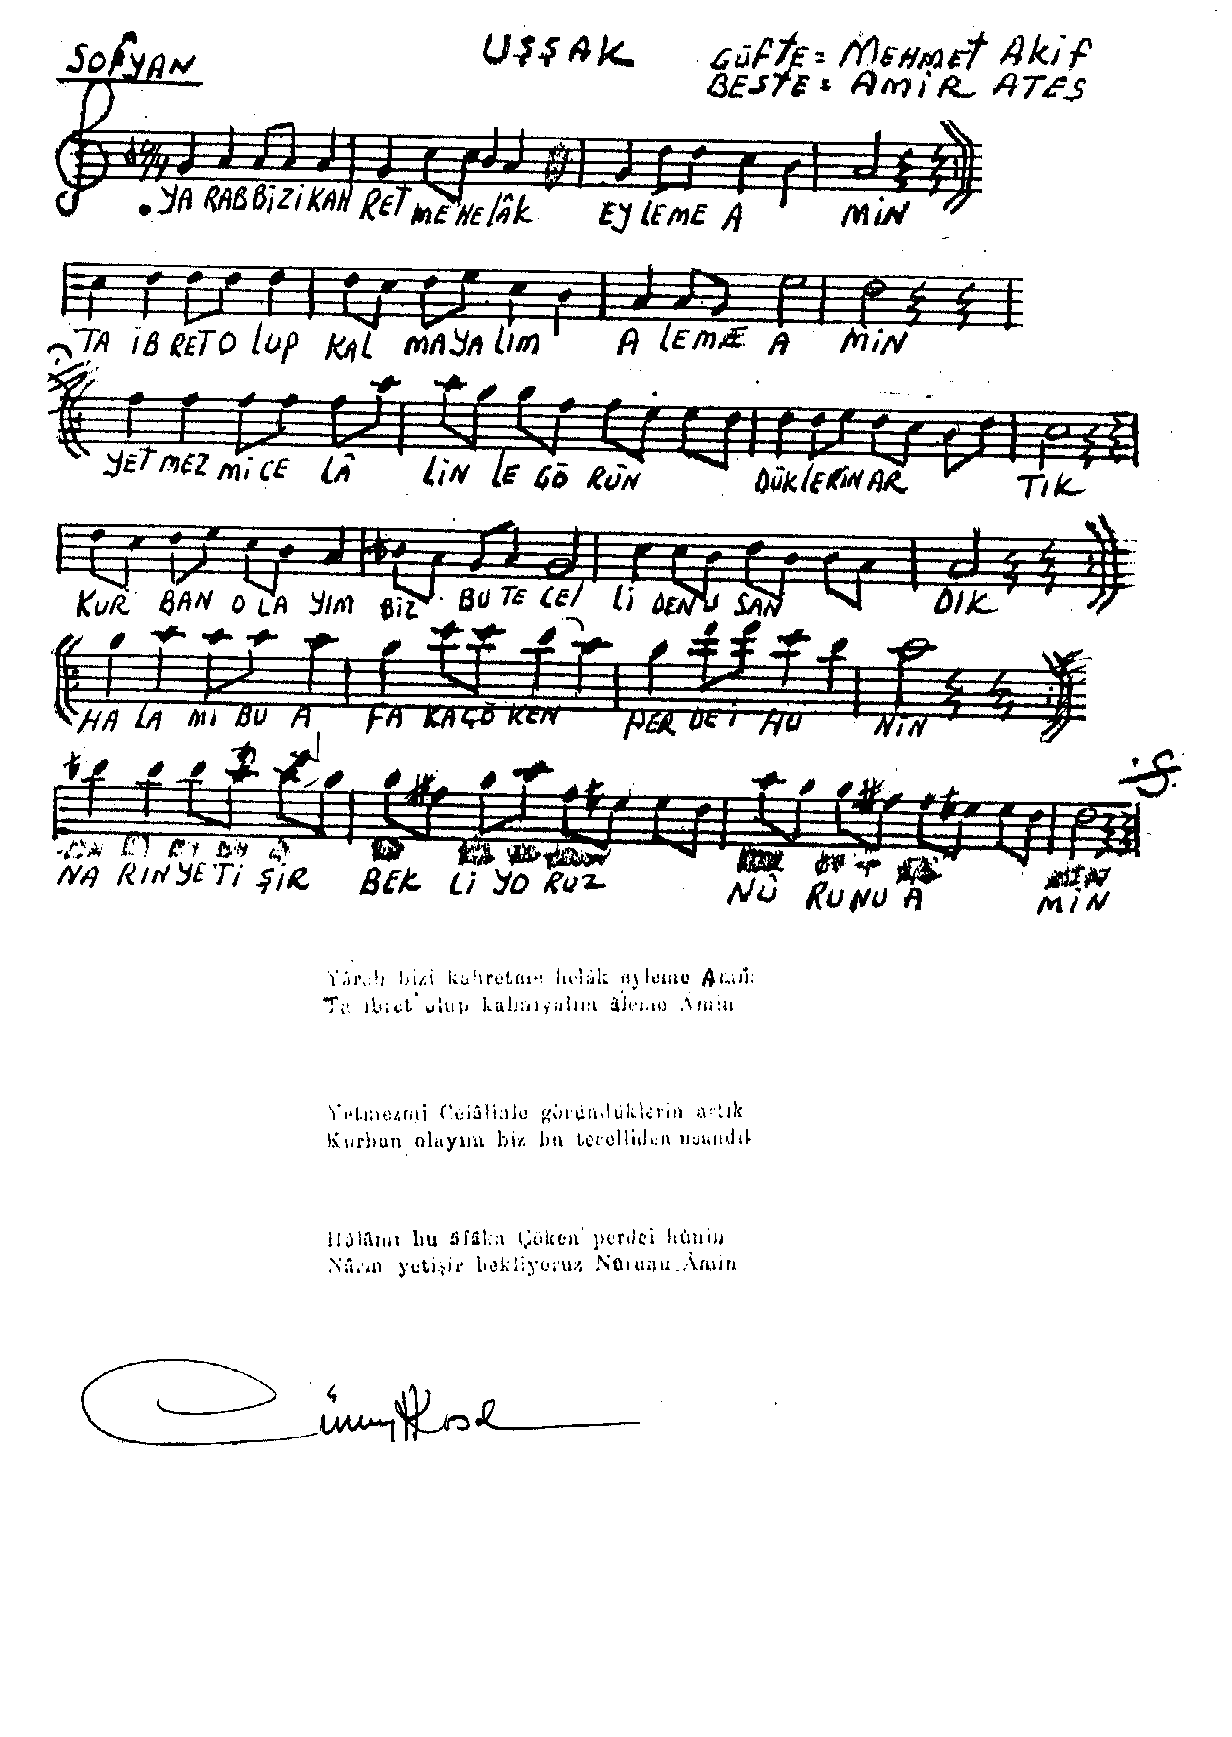 SOFYAN
UŞŞAK
GÜFTE = MEHMET AKİF
BESTE = AMİR ATEŞ
YA RAB BİZİ KAH RET ME HE LÂK EY LEME A MİN
TA İB RET O LUP KAL MA YA LIM A LEM E A MİN
YET MEZ Mİ CE LÂ LİN LE GÖ RÜN DÜKLERİN AR TIK
KUR BAN O LA YIM BİZ BU TE CEL Lİ DEN U SAN DIK
HA LA MI BU A FA KA ÇÖ KEN PER DEİ HÛ NİN
NA RIN YE Tİ ŞİR BEK Lİ YO RUZ NÛ RU NU A MİN
Yârab bizi kahretme helâk eyleme Amin
Ta ibret olup kalmıyalım âleme Amin
Yetmezmi Celâlinle göründüklerin artık
Kurban olayım biz bu tecelliden usandık
Hâlâmı bu âfâka Çöken perdei hûnin
Nârın yetişir bekliyoruz Nûrunu Âmin